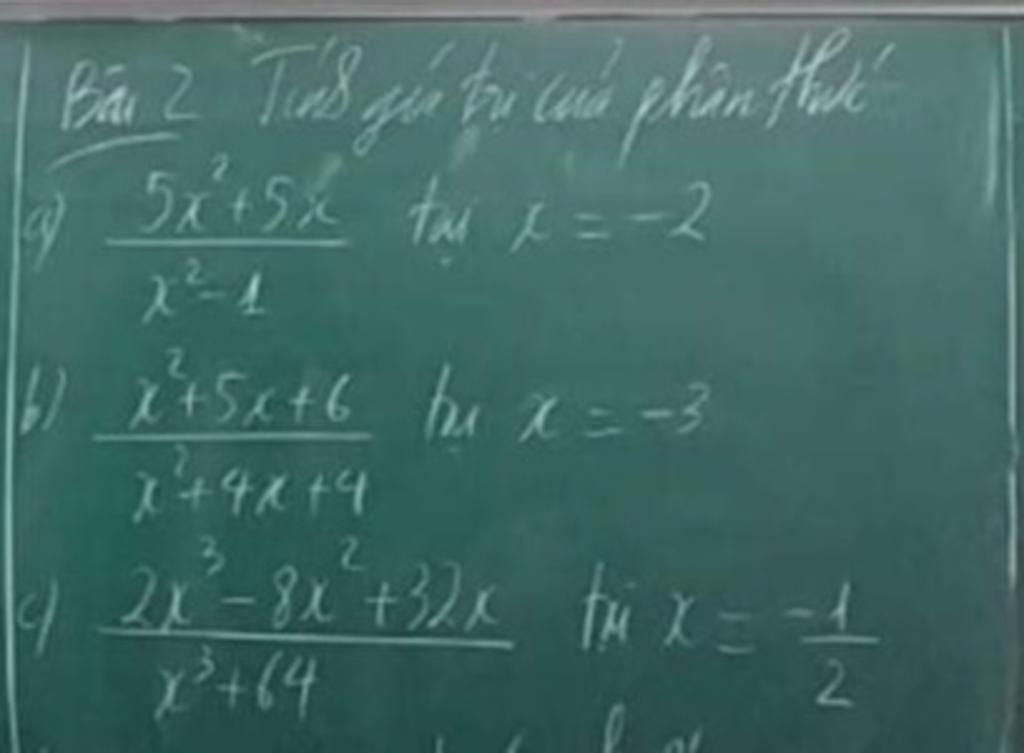 Bài 2 Tính giá trị của phân thức
a) \frac{5x^2+5x}{x^2-1} tại x = -2
b) \frac{x^2+5x+6}{x^2+4x+4} tại x = -3
c) \frac{2x^3-8x^2+32x}{x^3+64} tại x = \frac{-1}{2}